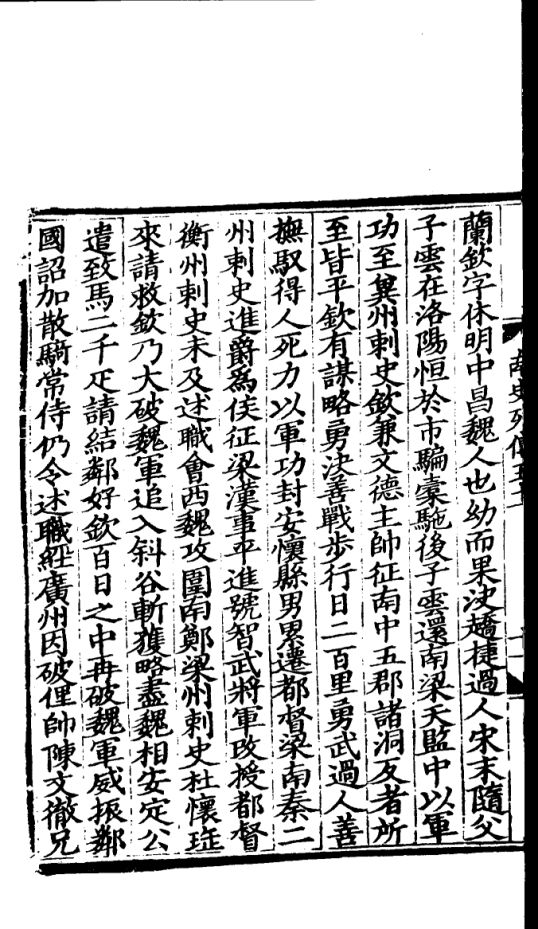 蘭欽字休明中昌魏人也幼而果決趫捷過人宋末隨父
子雲在洛陽恒於市騙橐駞後子雲還南梁天監中以軍
功至冀州刺史欽兼文德主帥征南中五郡諸洞反者所
至皆平欽有謀略勇決善戰步行日二百里勇武過人善
撫馭得人死力以軍功封安懷縣男累遷都督梁南秦二
州刺史進爵為侯征梁漢事平進號智武將軍改授都督
衡州刺史未及述職會西魏攻圍南鄭梁州刺史杜懷瑶
來請救欽乃大破魏軍追入斜谷斬獲略盡魏相安定公
遣致馬二千疋請結鄰好欽百日之中再破魏軍威振鄰
國詔加散騎常侍仍令述職經廣州因破俚帥陳文徹兄